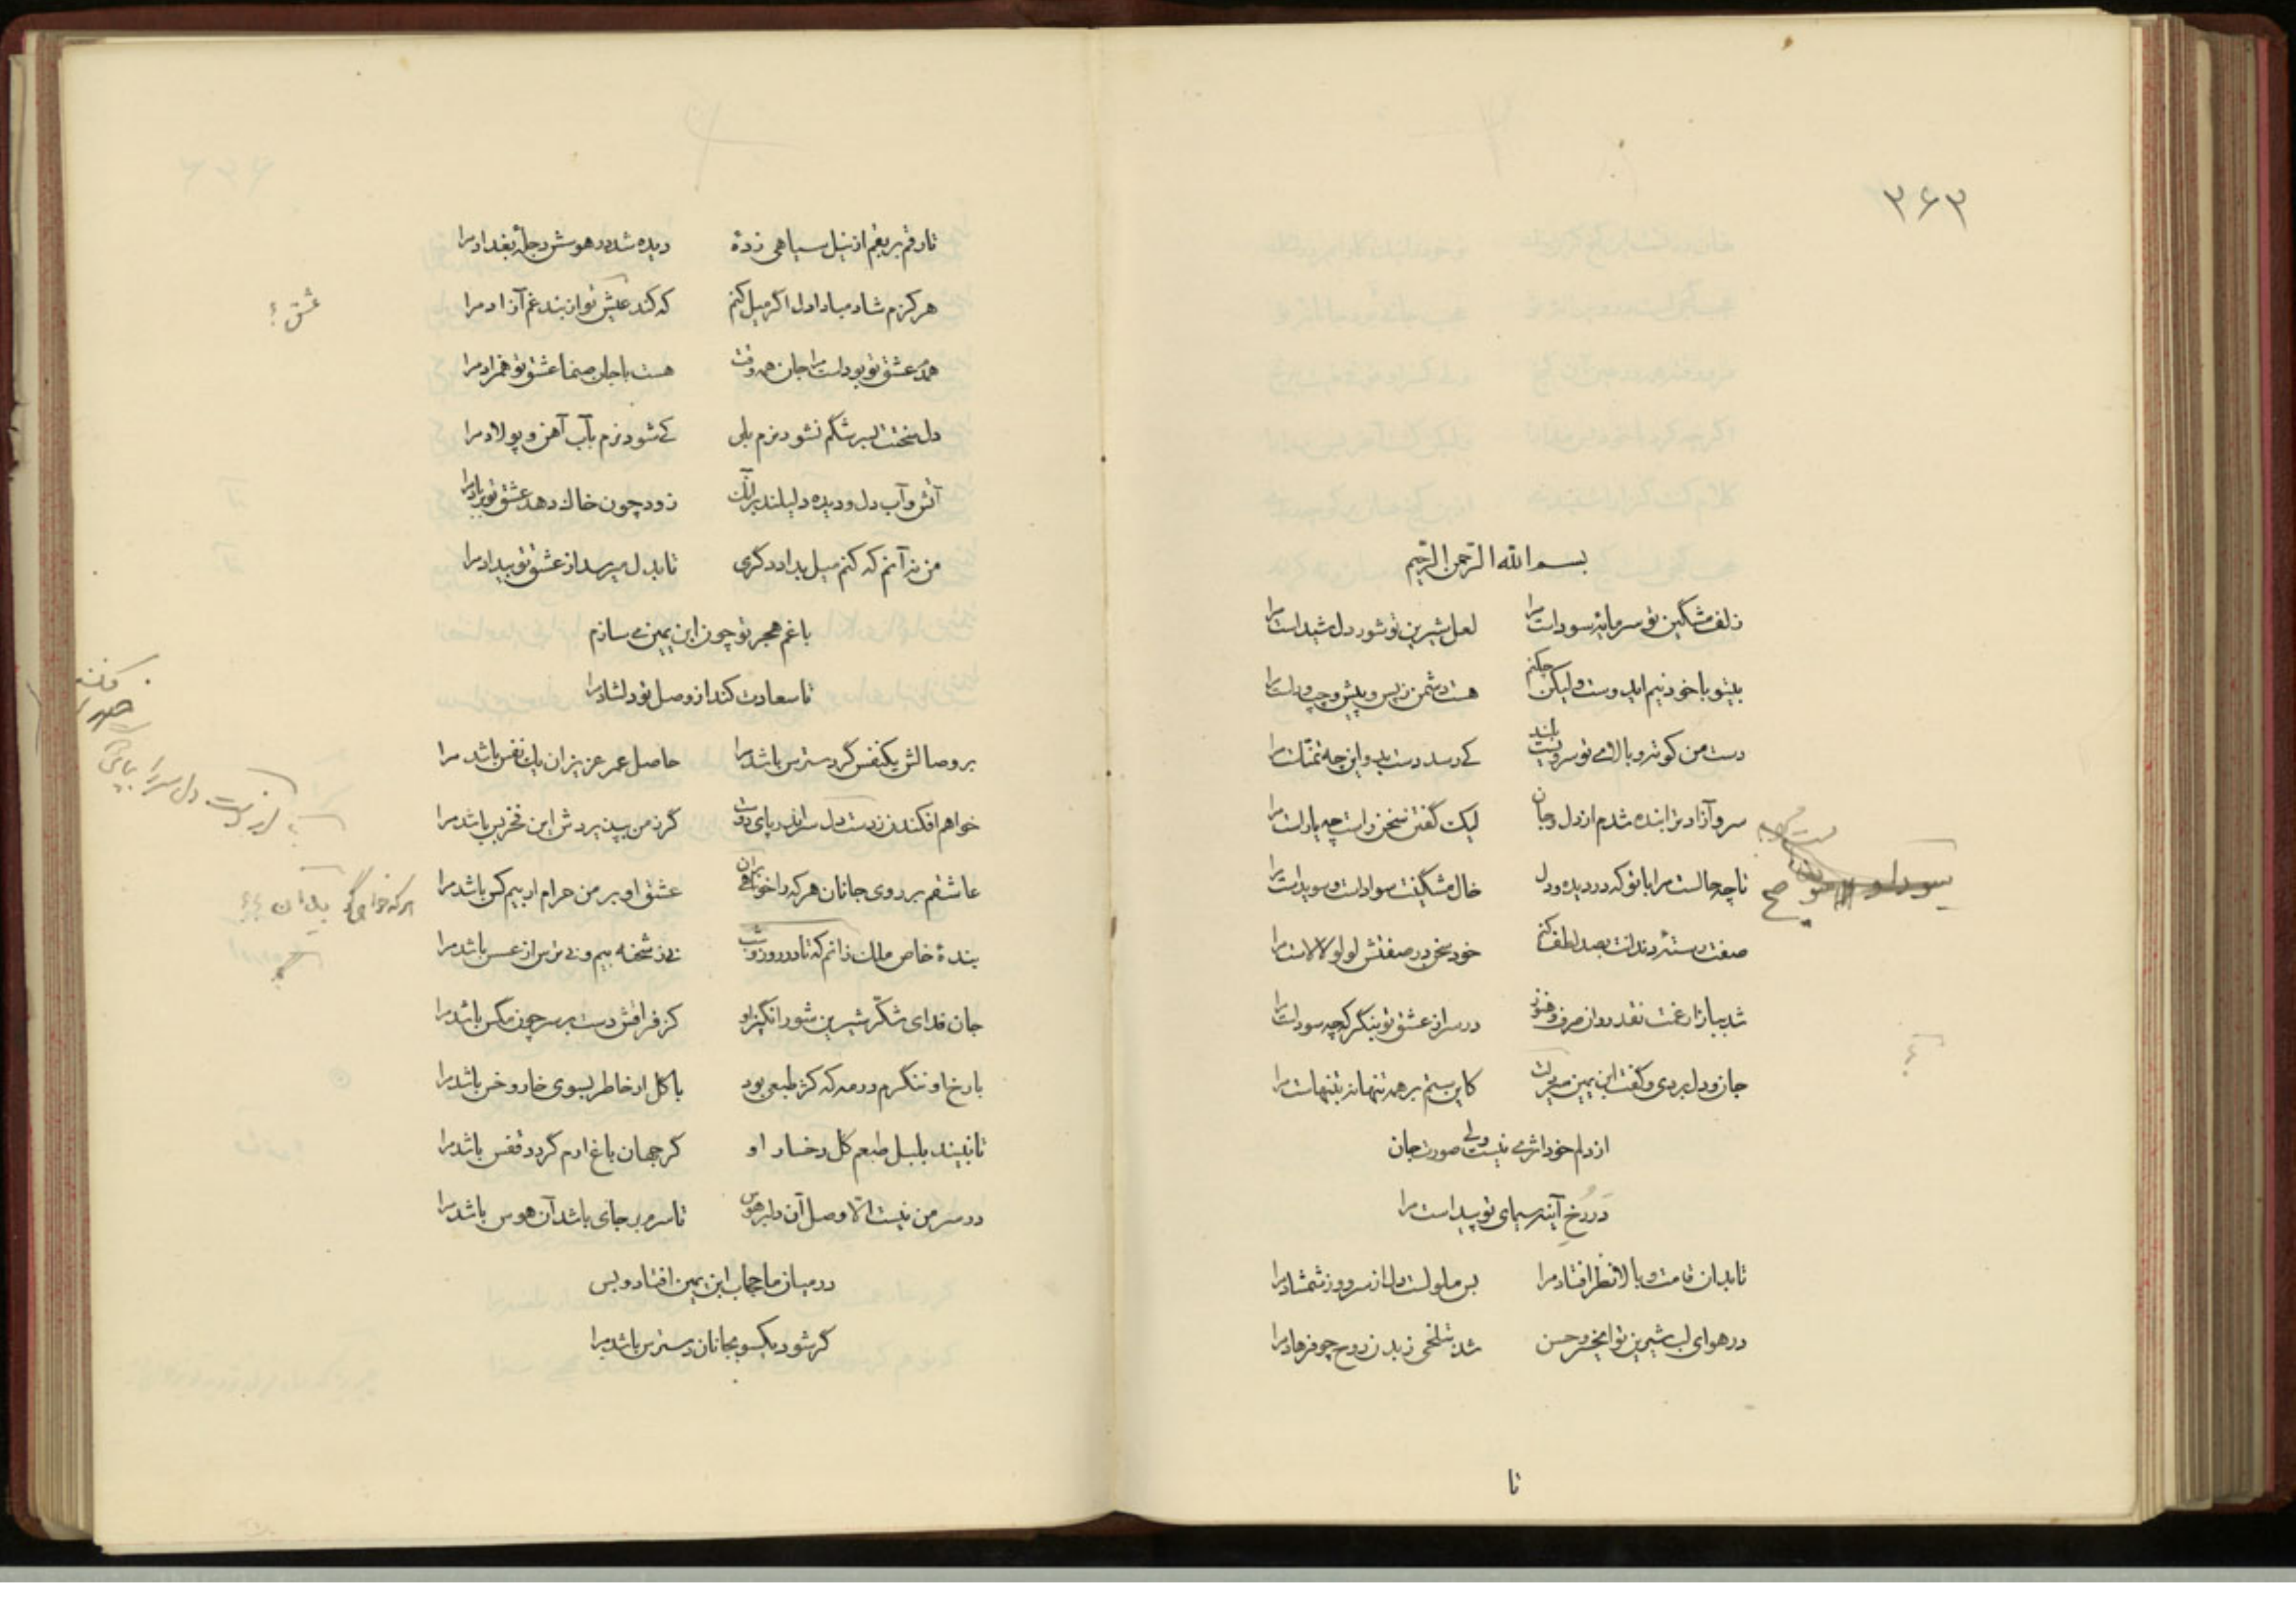 ۳۶۳
بسم الله الرحمن الرحیم
زلف مشکین تو سرمایهٔ سوداست مرا لعل شیرین تو شور دل شیداست مرا
بیتو با خود نیم ایدوست ولیکن چکنم هست دشمن ز پس و پیش و چپ و راست مرا
دست من کوته و بالای تو سرویست بلند کی رسد دست بدو این چه تمنّاست مرا
سرو آزاد ترا بنده شدم از دل و جان لیک گفتن سخن راست چه یاراست مرا
تا چه حالست مرا با تو که در دیده و دل خال مشکینت سواد است و سویداست مرا
صفت رستهٔ دندانت بصد لطف کنم خود سخن در صفتش لولو لالاست مرا
شد ببازار غمت نقد روان صرف و هنوز در سر از عشق تو بنگر که چه سوداست مرا
جان و دل بردی و گفت ابن یمین کاین ستم بر همه تنها نه بتنهاست مرا
از دلم خود اثری نیست ولی صورت جان
در رخ آینه سیمای تو پیداست مرا
تا بدان قامت و بالا نظر افتاد مرا بس ملولست دل از سرو و ز شمشاد مرا
در هوای لب شیرین تو ای خسرو حسن شد بتلخی ز بدن روح چو فرهاد مرا
تا
تا رقم بر بقم از نیل سیاهی زدهٔ دیده شد در هوسش دجلهٔ بغداد مرا
هرگزم شاد مبادا دل اگر میل کنم که کند عیش تو از بند غم آزاد مرا
عشق ؟
همدم عشق تو بودست مرا جان همه وقت هست با جان صنما عشق تو همزاد مرا
دل سختت بسرشگم نشود نرم بلی کی شود نرم بآب آهن و پولاد مرا
آتش و آب دل و دیده دلیلند بر آنک زود چون خاک دهد عشق تو بر باد مرا
من نه آنم که کنم میل بداد دگری تا بدل میرسد از عشق تو بیداد مرا
با غم هجر تو چون ابن یمین می سازم
تا سعادت کند از وصل تو دلشاد مرا
بر وصالش یکنفس گر دسترس باشد مرا حاصل عمر عزیز ان یک نفس باشد مرا
خواهم افکندن ز دست دل سر اندر پای دوست گر ز من بپذیردش این فخر بس باشد مرا
عاشقم بر روی جانان هر که را خواهی عشق او بر من حرام ار بیم کس باشد مرا
بندهٔ خاص ملک زانم که تا در روز و شب نی ز شحنه بیم و نی ترس از عسس باشد مرا
جان فدای شکّر شیرین شور انگیز او کز فراقش دست بر سر چون مگس باشد مرا
با رخ او ننگرم در مه که کژ طبعی بود با گل ار خاطر بسوی خار و خس باشد مرا
تا نبیند بلبل طبعم گل رخسار او گر جهان باغ ارم گردد قفس باشد مرا
در سر من نیست الّا وصل آن دلبر هوس تا سرم بر جای باشد آن هوس باشد مرا
در میان ما حجاب ابن یمین افتاد و بس
گر شود یکسو بجانان دسترس باشد مرا